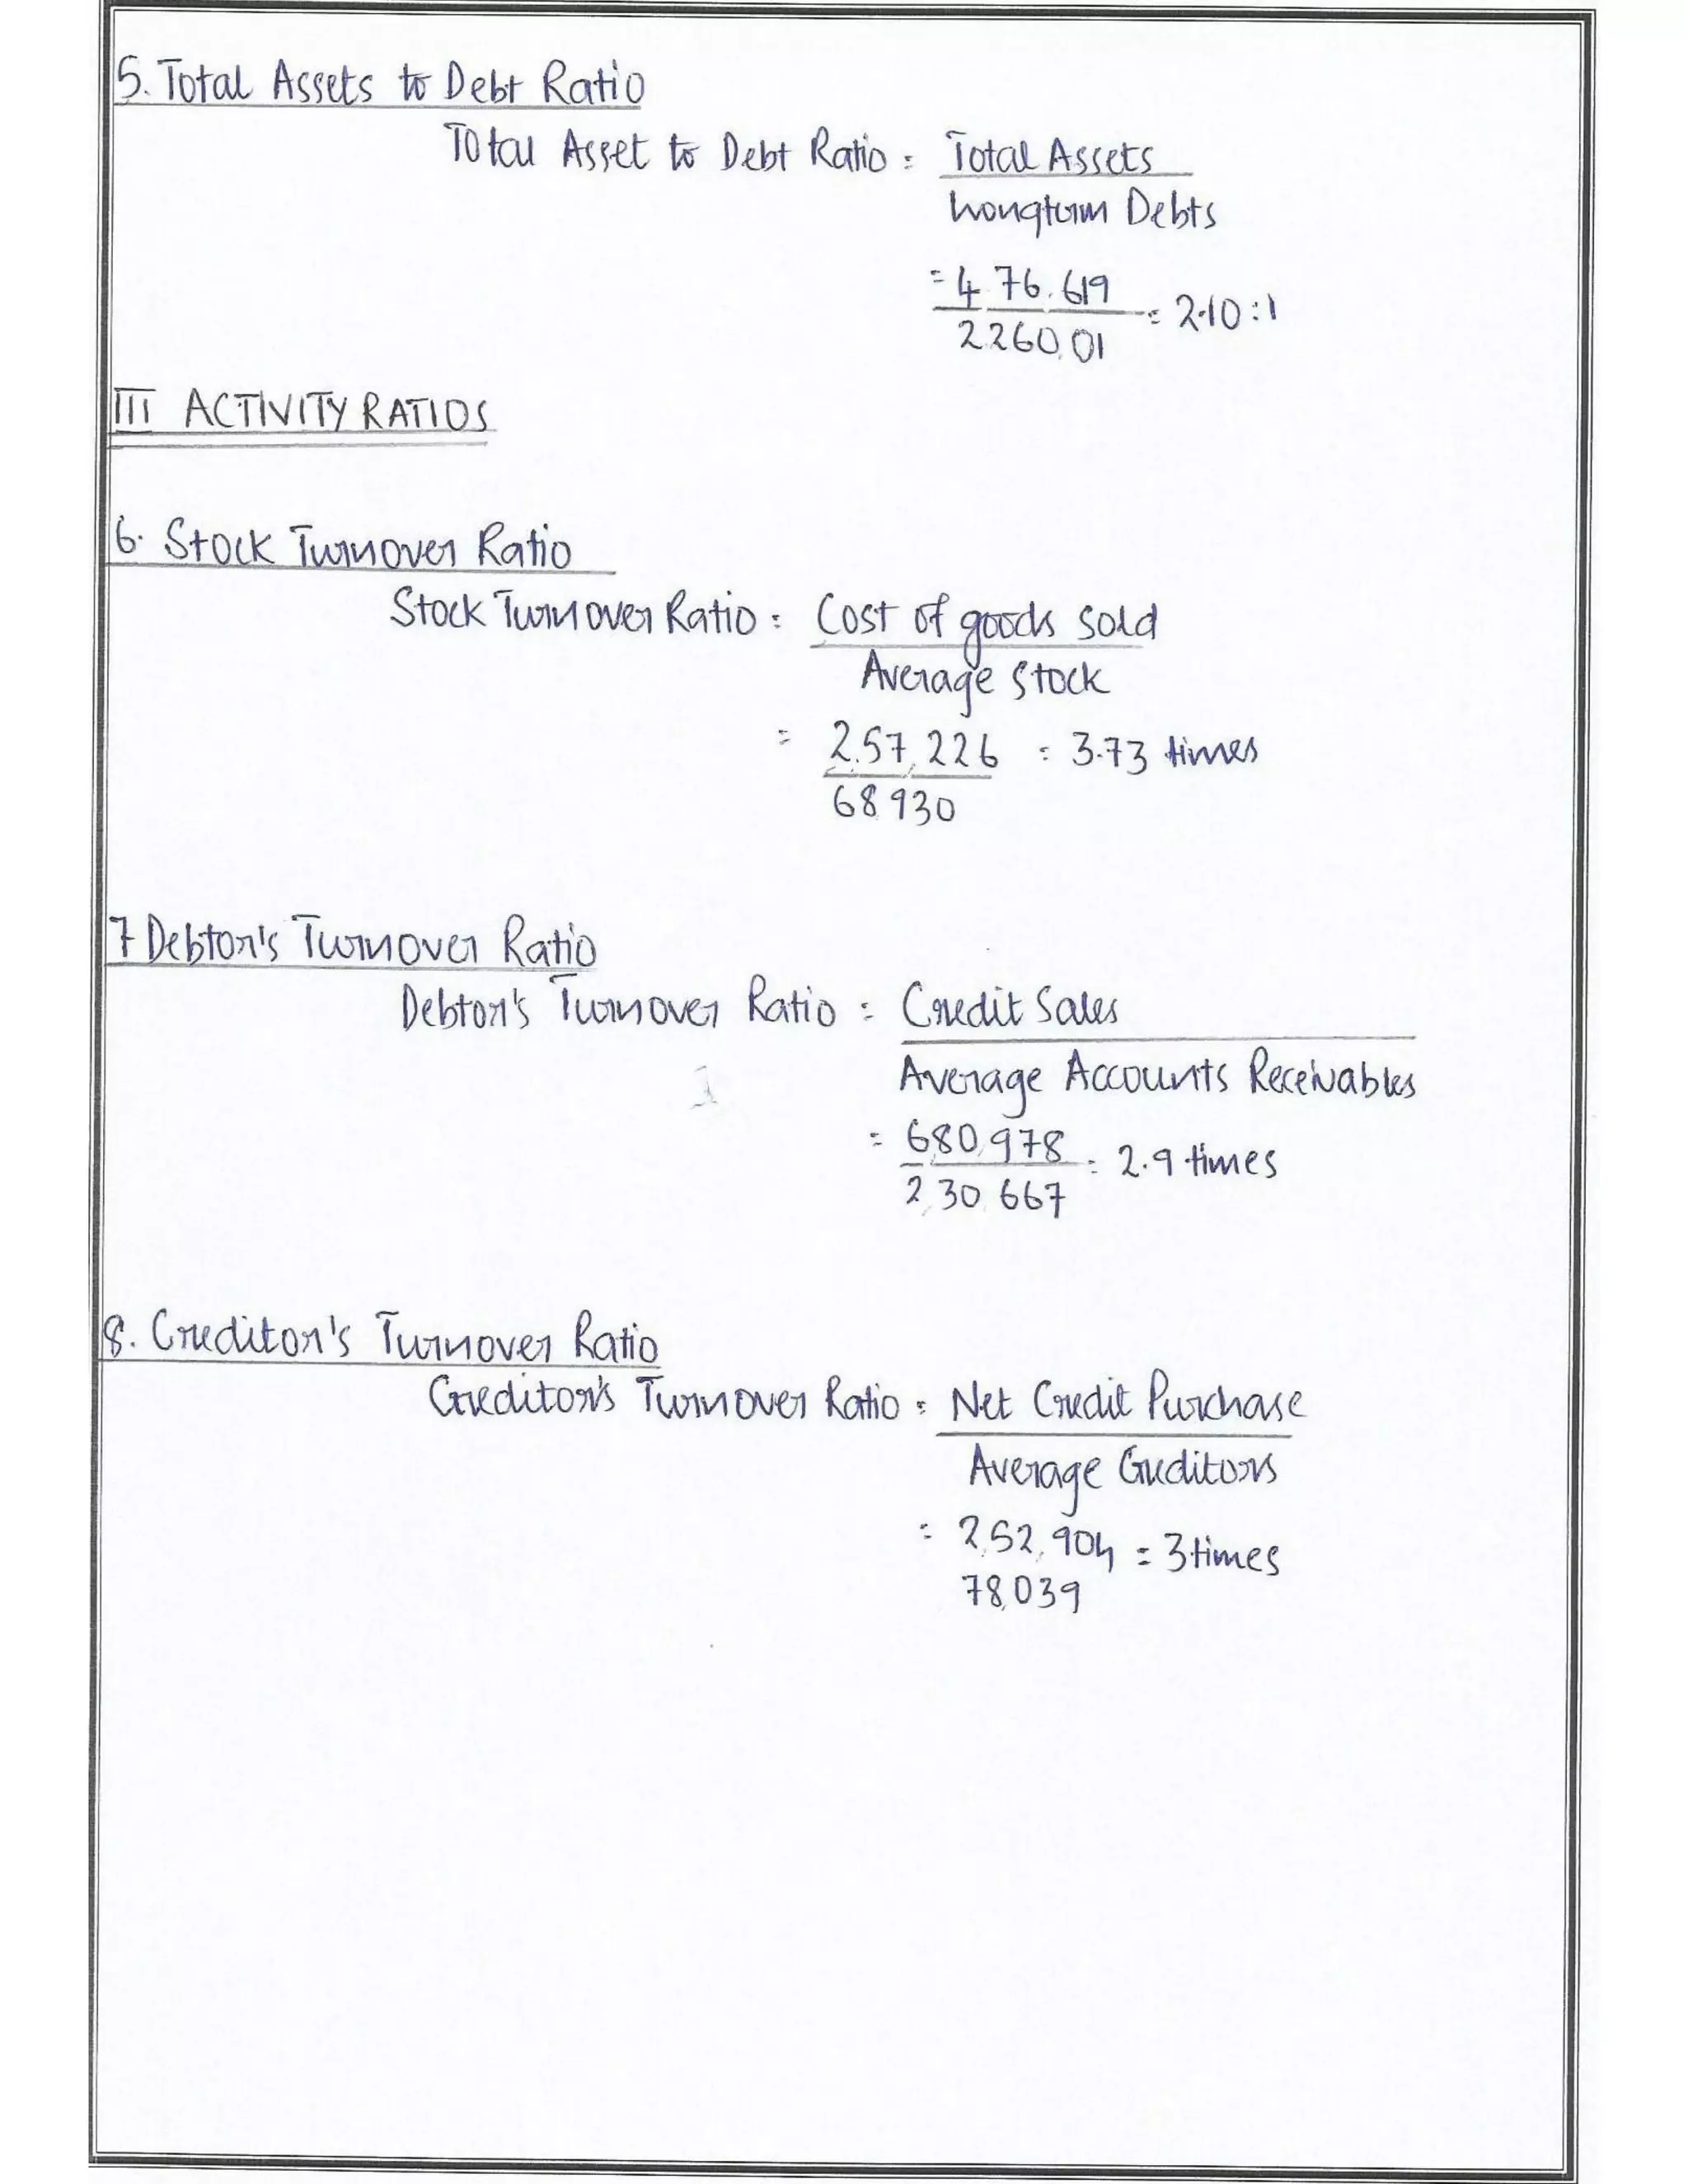 5. Total Assets to Debt Ratio
Total Asset to Debt Ratio = Total Assets
Longterm Debts
= 4,76,619 = 2.10:1
2,260,01
III ACTIVITY RATIOS
6. Stock Turnover Ratio
Stock Turnover Ratio = Cost of goods sold
Average Stock
= 2,57,226 = 3.73 times
68,930
7 Debtor's Turnover Ratio
Debtor's Turnover Ratio = Credit Sales
Average Accounts Receivables
= 6,80,978 = 2.9 times
2,30,667
8. Creditor's Turnover Ratio
Creditor's Turnover Ratio = Net Credit Purchase
Average Creditors
= 2,52,904 = 3 times
78,039